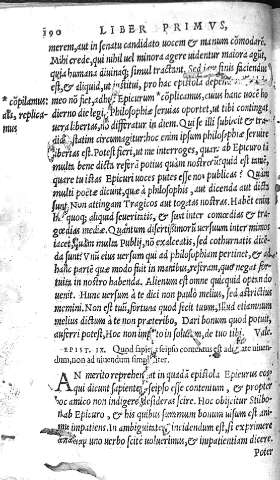 190 LIBER PRIMVS,
merem, aut in senatu candidato vocem & manum cõmodarẽ.
Mihi crede, qui nihil vel minora agere videntur maiora agũt,
quia humana diuinaq; simul tractant. Sed iam finis faciendus
est, & aliquid, ut institui, pro hac epistola dependendum
*cõpilamus: meo nõ fiet, adhuc Epicurum *cõplicamus, cuius hanc vocẽ ho
aliàs, replica- dierno die legi, Philosophiæ seruias oportet, ut tibi contingat
mus vera libertas, nõ differtur in diem. Qui se illi subiecit & tra-
didit, statim circumagitur: hoc enim ipsum philosophiæ seruire
libertas est. Potest fieri, ut me interroges, quare ab Epicuro tã
multa bene dicta referã potius quàm nostrorũ: quid est tamẽ,
quare tu istas Epicuri voces putes esse nõ publicas? Quàm
multi poëtæ dicunt, quæ à philosophis, aut dicenda aut dicta
sunt? Non attingam Tragicos aut togatas nostras. Habẽt enim
hæ quoq; aliquid seueritatis, & sunt inter comœdias & tra-
gœdias mediæ. Quantum disertissimorũ versuum inter mimos
iacet? Quàm multa Publij, nõ excalceatis, sed cothurnatis dicẽ-
da sunt? Vnũ eius versum qui ad philosophiam pertinet, & ad
hanc partẽ quæ modo fuit in manibus, referam, quo negat for-
tuita in nostro habenda. Alienum est omne quicquid optando
uenit. Hunc versum à te dici non paulo melius, sed astrictius
memini. Non est tuũ, fortuna quod fecit tuum. Illud etiamnum
melius dictum à te non præteribo, Dari bonum quod potuit,
auferri potest. Hoc non imputo in solutũ, de tuo tibi. Vale.
EPIST. IX. Quod sapiens seipso contentus est ad uiuen-
dum, non ad uiuendum
AN merito reprehendat in quadã epistola Epicurus eos
qui dicunt sapientem seipso esse contentum, & propter
hoc amico non indigere, desideras scire. Hoc obijcitur Stilbo-
ni ab Epicuro, & his quibus summum bonum uisum est ani-
mus impatiens. In ambiguitatem incidendum est, si exprimere
uno verbo scitè voluerimus, & impatientiam dicere.
Poter